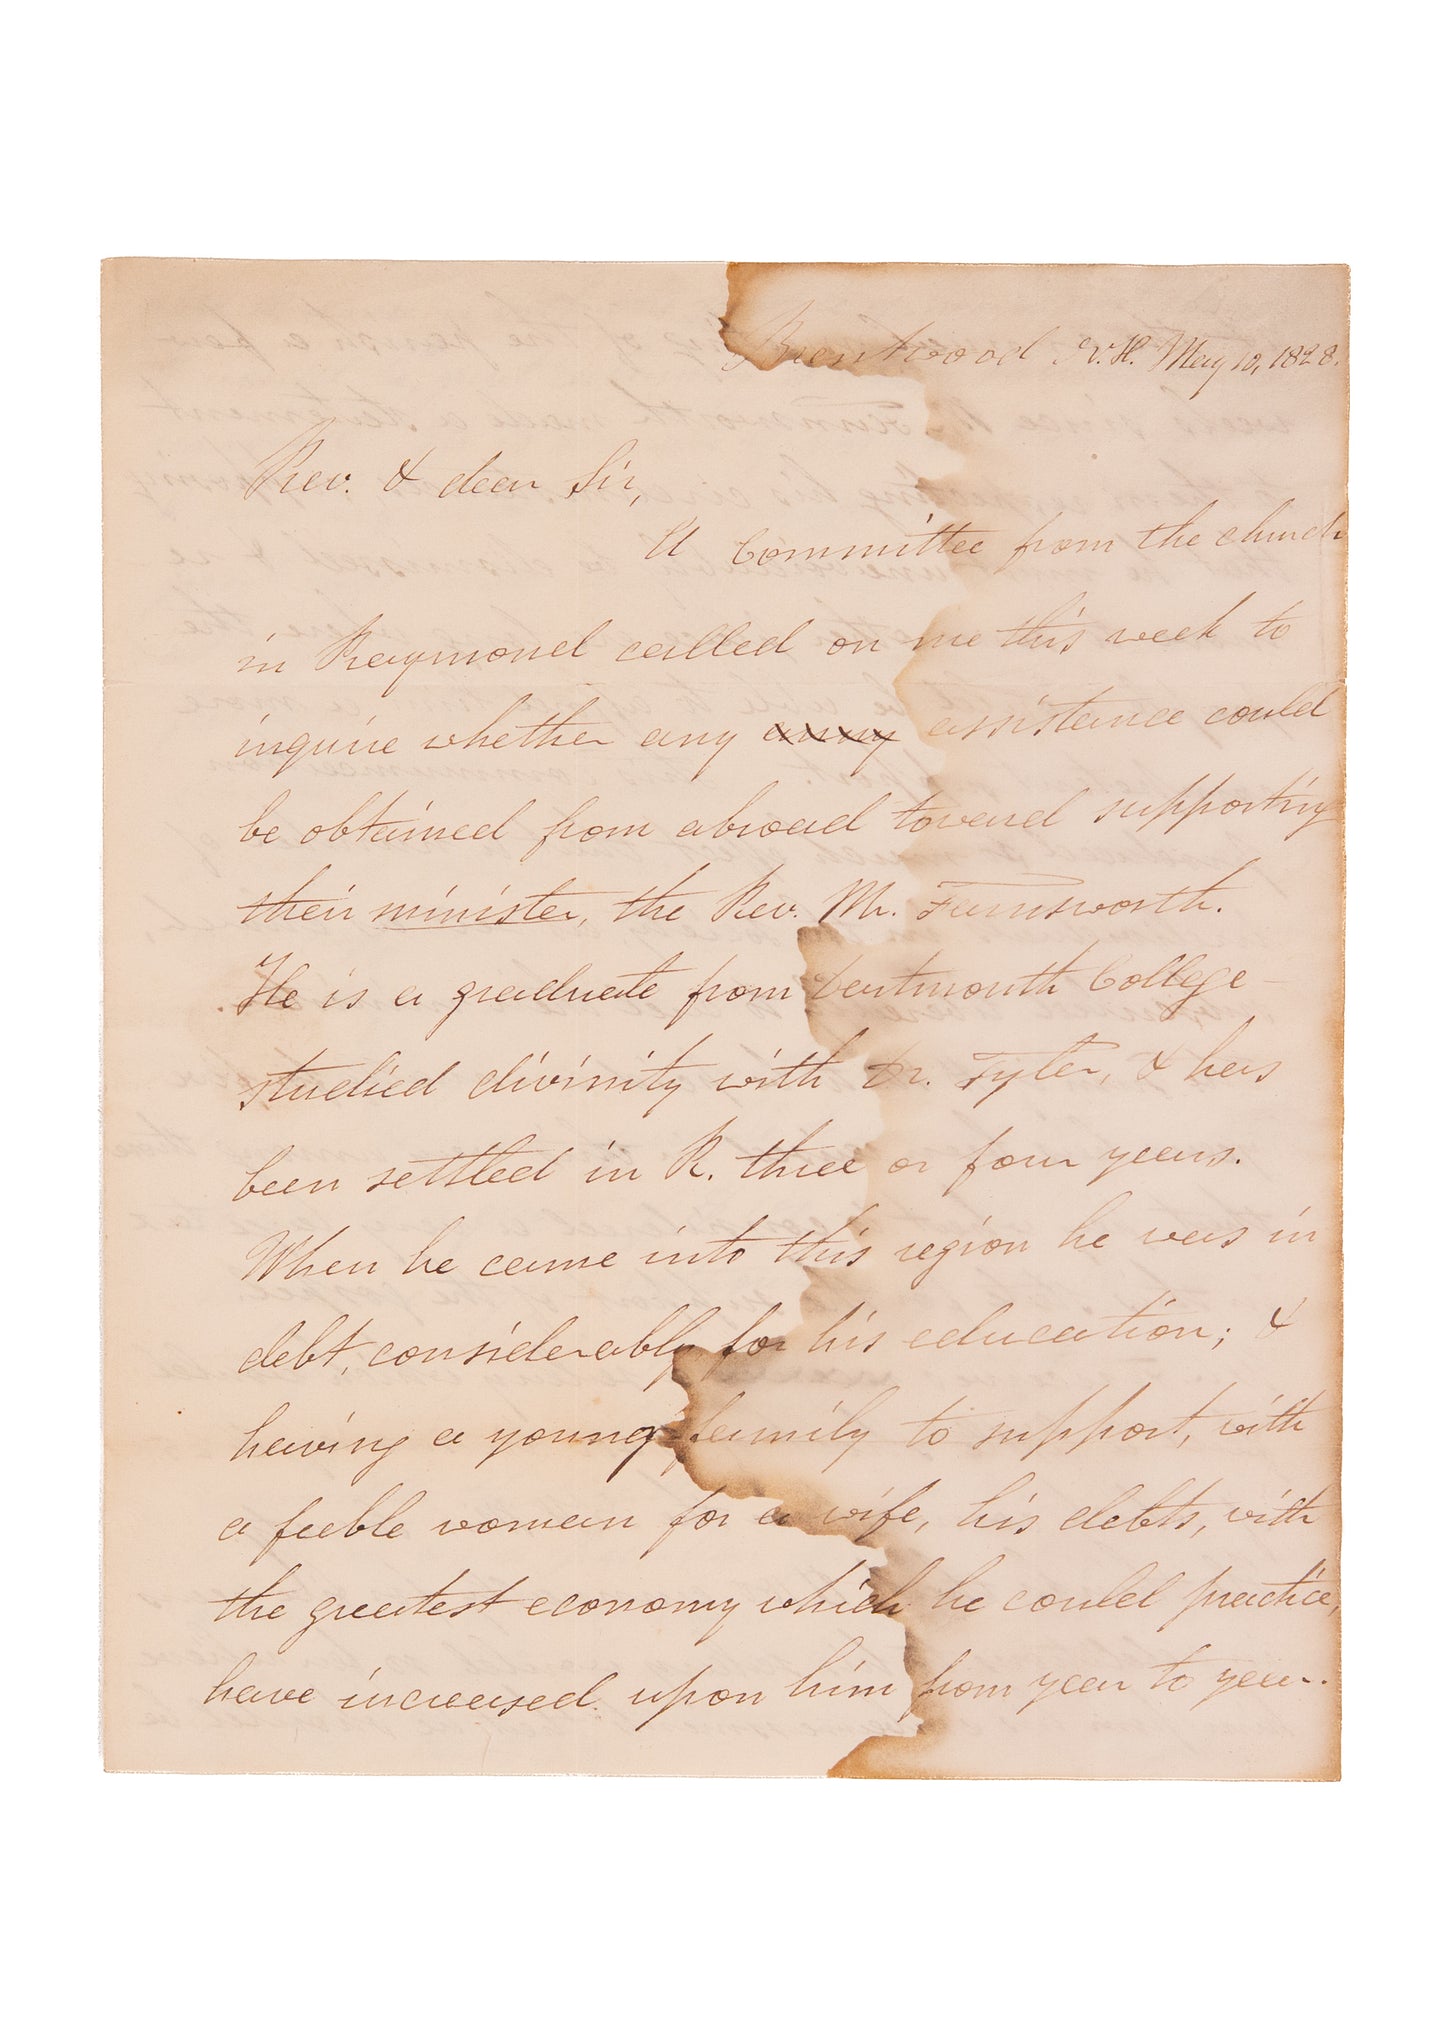 Brentwood N.H. May 10, 1828.
Rev. & dear Sir,
A Committee from the church
in Raymond called on me this week to
inquire whether any assistance could
be obtained from abroad toward supporting
their minister, the Rev. Mr. Farnsworth.
He is a graduate from Dartmouth College
studied divinity with Dr. Tyler, & has
been settled in R. three or four years.
When he came into this region he was in
debt, considerably for his education; &
having a young family to support, with
a feeble woman for a wife, his debts, with
the greatest economy which he could practice,
have increased upon him from year to year.